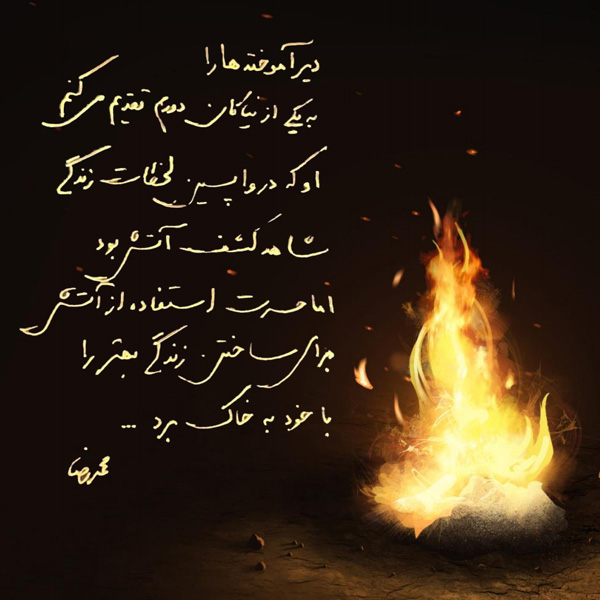 دیرآموخته‌ها را
به یکی از نیاکان دورم تقدیم می‌کنم
او که در واپسین لحظات زندگی
شاهد کشف آتش بود
اما حسرت استفاده از آتش
برای ساختن زندگی بهتر را
با خود به خاک برد ...
محمدرضا